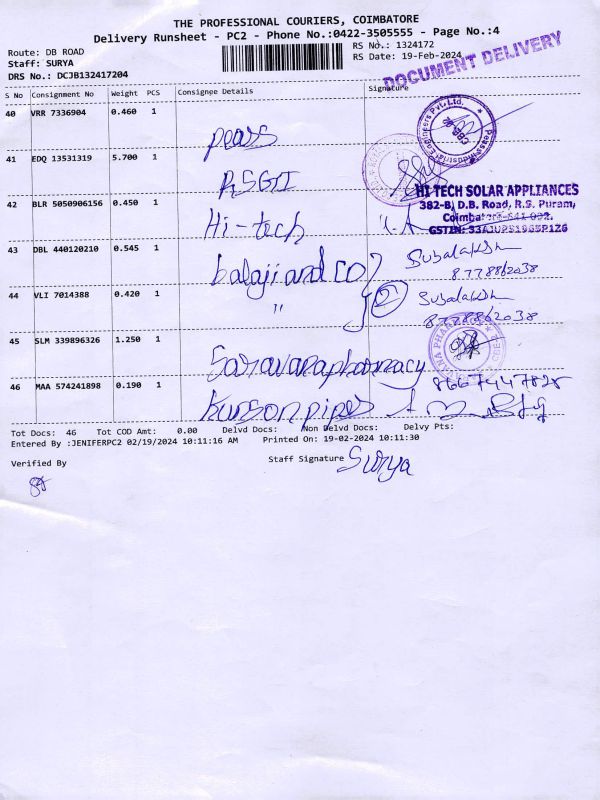 THE PROFESSIONAL COURIERS, COIMBATORE
Delivery Runsheet - PC2 - Phone No.:0422-3505555 - Page No.:4
Route: DB ROAD
RS No.: 1324172
Staff: SURYA
RS Date: 19-Feb-2024
DRS No.: DCJB132417204
DOCUMENT DELIVERY
S No Consignment No Weight PCS Consignee Details Signature
40 VRR 7336904 0.460 1
pears
41 EDQ 13531319 5.700 1
RSGII
HI TECH SOLAR APPLIANCES
382-B, D.B. Road, R.S. Puram,
Coimbatore-641 002.
GSTIN: 33AJUPS1965P1Z6
42 BLR 5050906156 0.450 1
Hi-tech
43 DBL 440120210 0.545 1
balaji and CO
8778862038
44 VLI 7014388 0.420 1
" 2
8778862038
45 SLM 339896326 1.250 1
Saravana pharmacy
8667447828
46 MAA 574241898 0.190 1
Kunson pipes
Tot Docs: 46 Tot COD Amt: 0.00 Delvd Docs: Non Delvd Docs: Delvy Pts:
Entered By :JENIFERPC2 02/19/2024 10:11:16 AM Printed On: 19-02-2024 10:11:30
Verified By
Staff Signature Surya